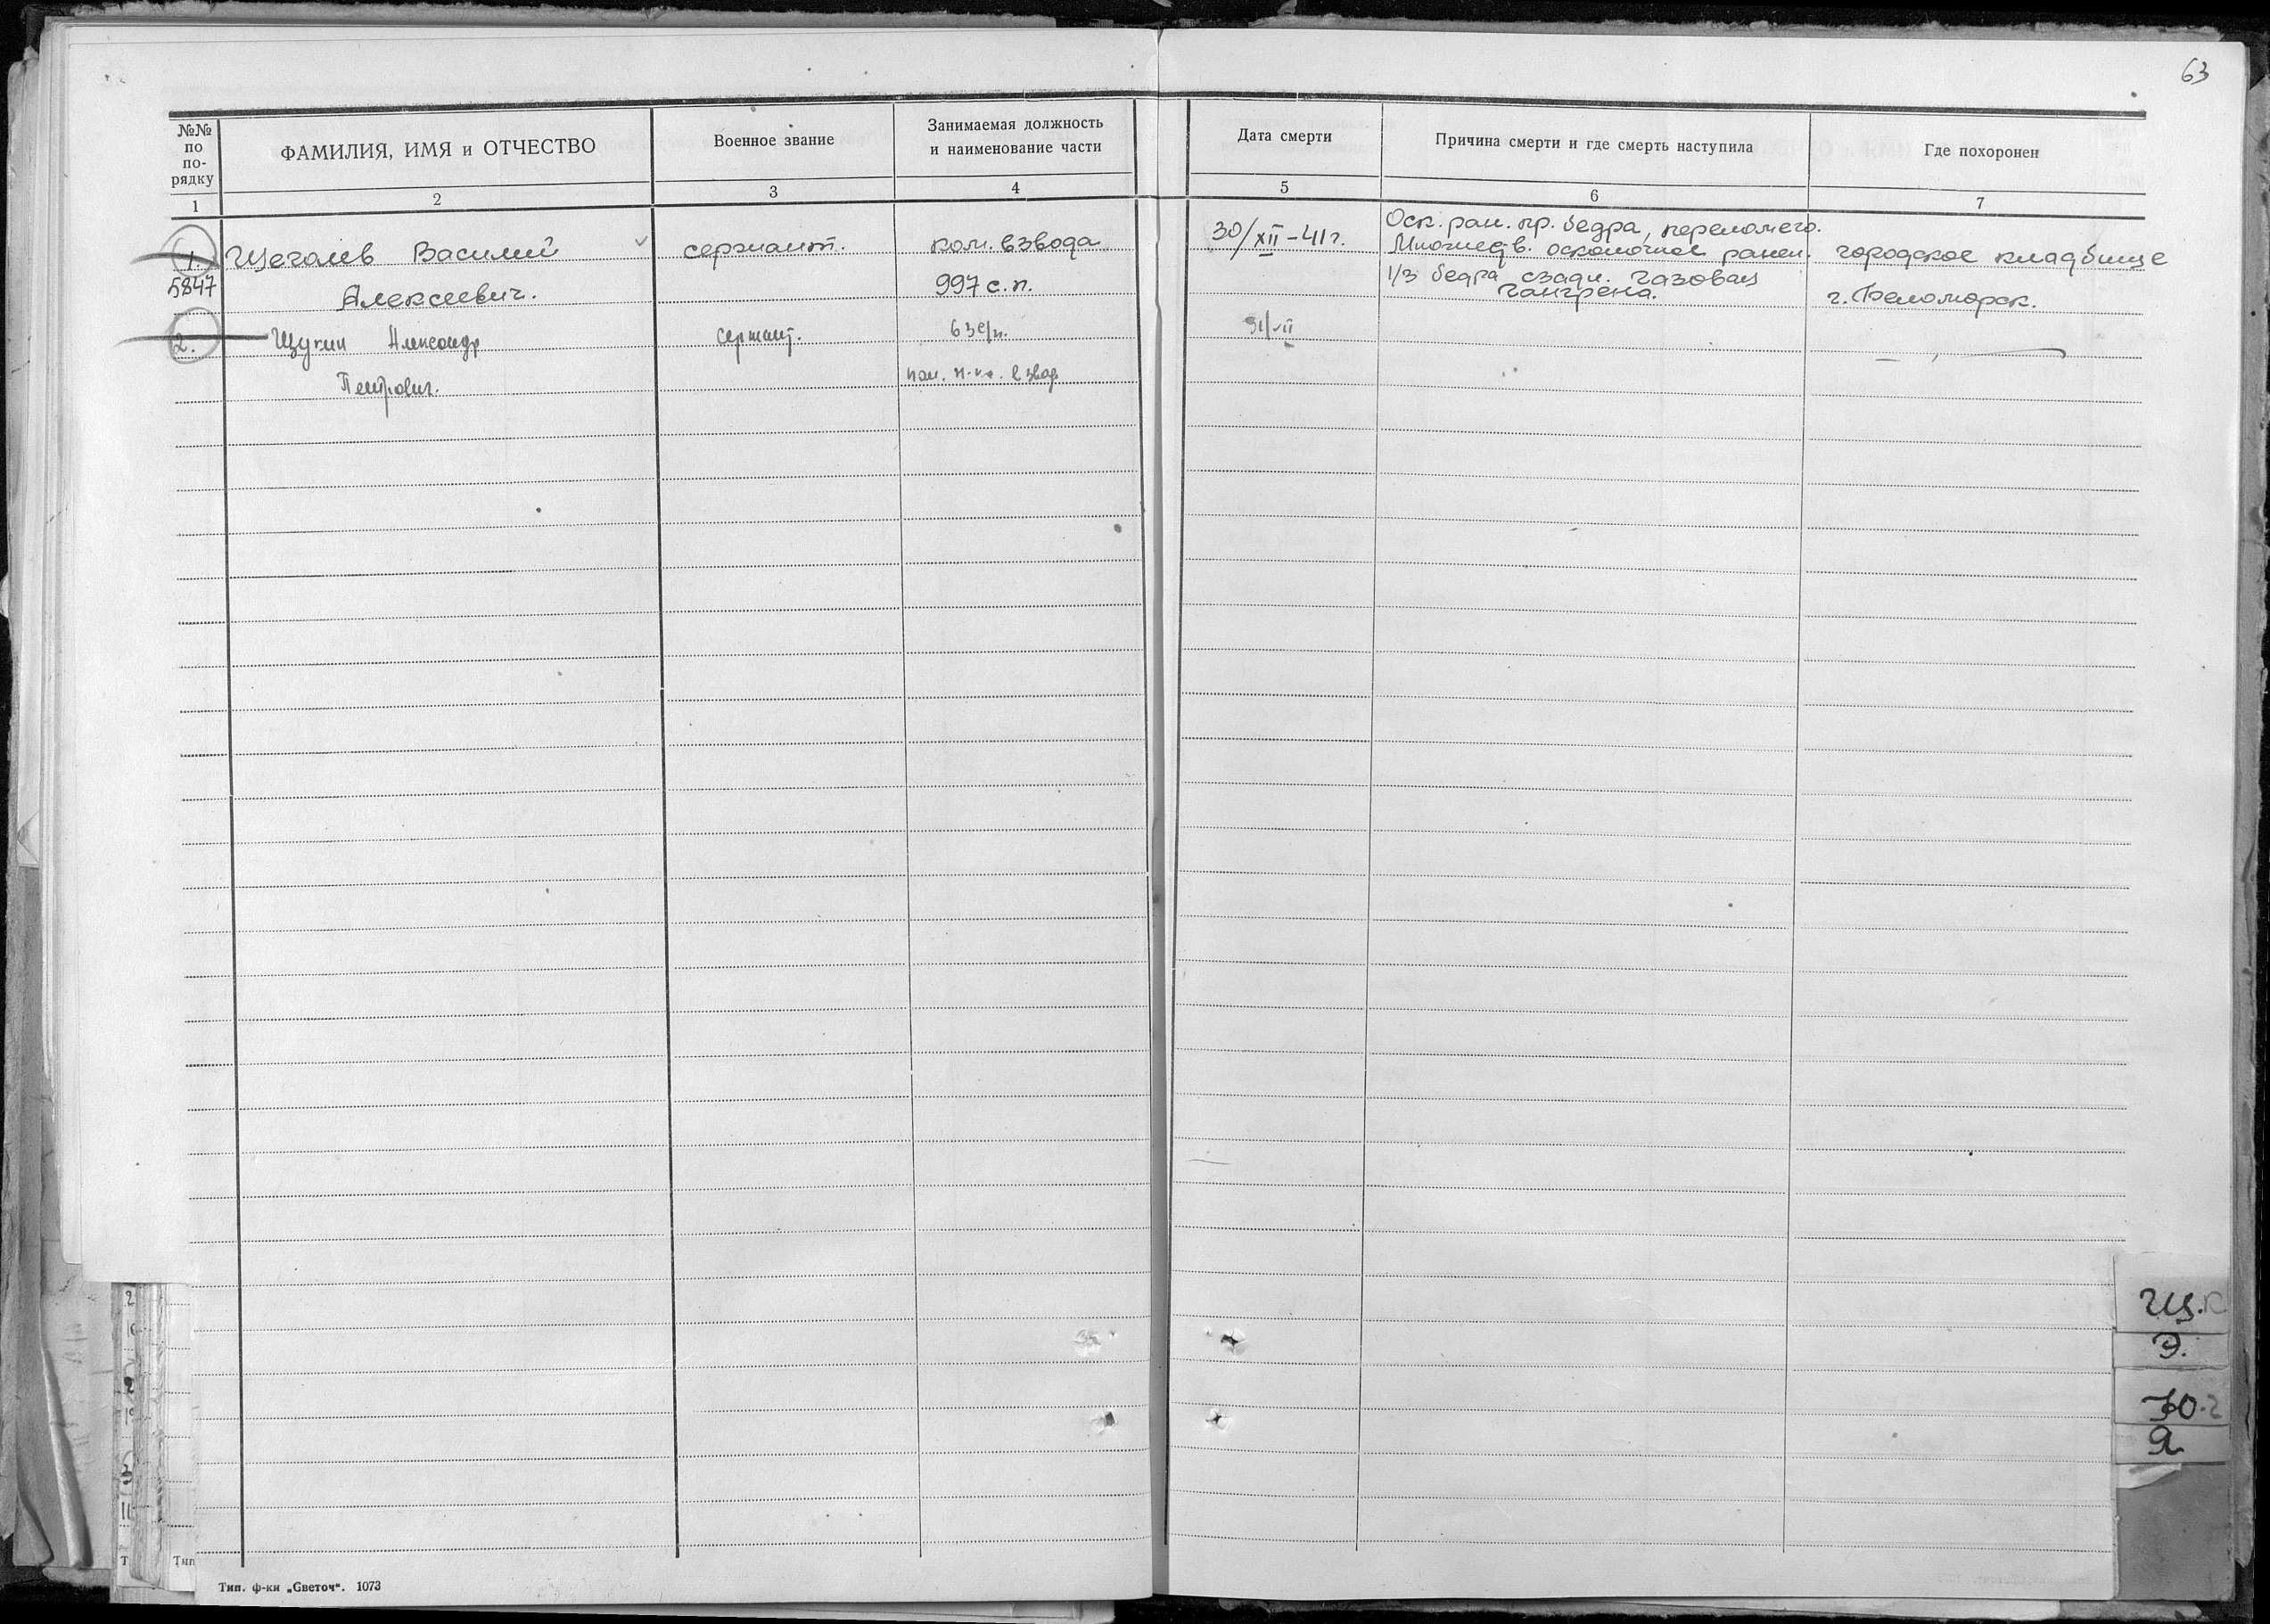 63
№№ по по-рядку
ФАМИЛИЯ, ИМЯ и ОТЧЕСТВО
Военное звание
Занимаемая должность
и наименование части
Дата смерти
Причина смерти и где смерть наступила
Где похоронен
1 2 3 4 5 6 7
Оск. ран. пр. бедра, перелом его.
1. Щеголев Василий сержант. ком. взвода 30/XII-41г. Множеств. осколочное ранен. городское кладбище
5847 Алексеевич. 997 с.п. 1/3 бедра сзади. газовая
гангрена. г. Беломорск.
2. Щукин Александр сержант.
Петрович. взвод
Щ.
Э.
Ю.
Я
Тип. ф-ки „Светоч“. 1073